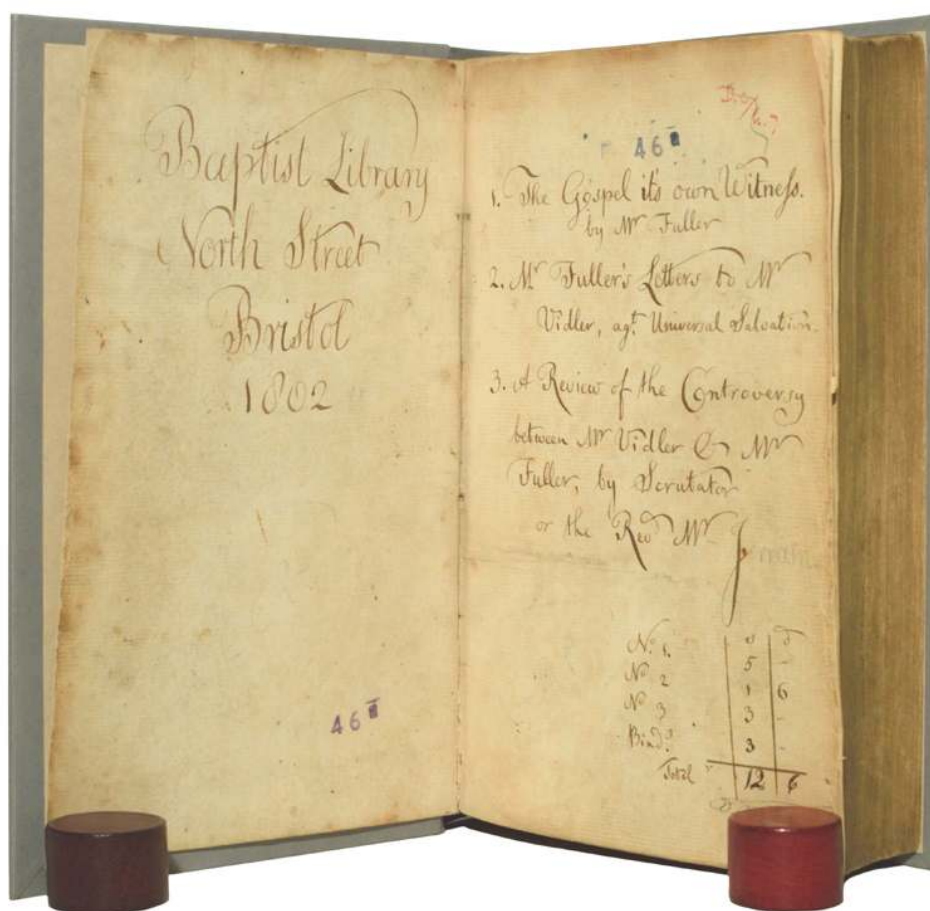 Baptist Library
North Street
Bristol
1802
46
46
1. The Gospel it's own Witness.
by Mr Fuller
2. Mr Fuller's Letters to Mr
Vidler, agt. Universal Salvation.
3. A Review of the Controversy
between Mr Vidler & Mr
Fuller, by Scrutator
or the Revd Mr J
s d
No. 1. 5 -
No 2 1 6
No 3 3 -
Bindg. 3 -
Total 12 6